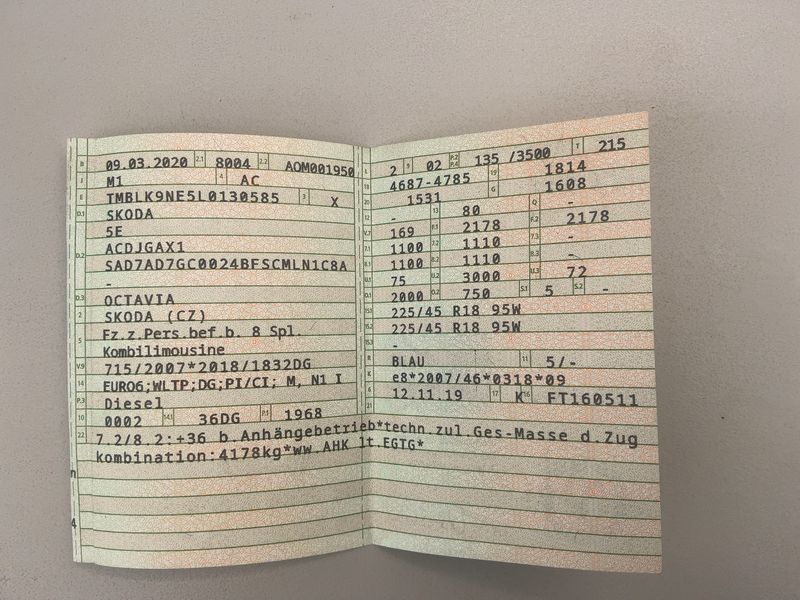 B 09.03.2020 2.1 8004 2.2 AOM001950
J M1 4 AC
E TMBLK9NE5L0130585 3 X
D.1 SKODA
5E
D.2 ACDJGAX1
SAD7AD7GC0024BFSCMLN1C8A
-
D.3 OCTAVIA
2 SKODA (CZ)
5 Fz.z.Pers.bef.b. 8 Spl.
Kombilimousine
V.9 715/2007*2018/1832DG
14 EURO6;WLTP;DG;PI/CI; M, N1 I
P.3 Diesel
10 0002 14.1 36DG P.1 1968
L 2 9 02 P.2 P.4 135 /3500 T 215
18 4687-4785 19 1814
20 1531 G 1608
12 - 13 80 Q -
V.7 169 F.1 2178 F.2 2178
7.1 1100 7.2 1110 7.3 -
8.1 1100 8.2 1110 8.3 -
U.1 75 U.2 3000 U.3 72
O.1 2000 O.2 750 S.1 5 S.2 -
15.1 225/45 R18 95W
15.2 225/45 R18 95W
15.3 -
R BLAU 11 5/-
K e8*2007/46*0318*09
6 12.11.19 17 K 16 FT160511
21
22 7.2/8.2:+36 b.Anhängebetrieb*techn.zul.Ges-Masse d.Zug
kombination:4178kg*ww.AHK lt.EGTG*
n
4